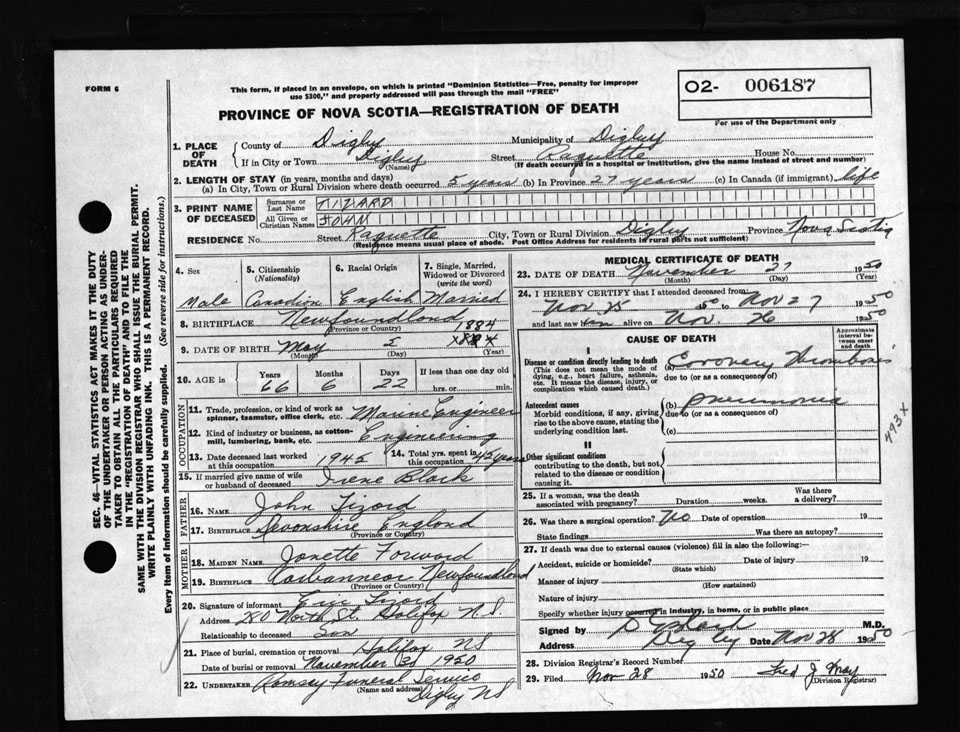 FORM 6
This form, if placed in an envelope, on which is printed "Dominion Statistics—Free, penalty for improper
use $300," and properly addressed will pass through the mail "FREE"
PROVINCE OF NOVA SCOTIA—REGISTRATION OF DEATH
02- 006187
For use of the Department only
SEC. 46—VITAL STATISTICS ACT MAKES IT THE DUTY
OF THE UNDERTAKER OR PERSON ACTING AS UNDER-
TAKER TO OBTAIN ALL THE PARTICULARS REQUIRED
IN THE "REGISTRATION OF DEATH" AND TO FILE THE
SAME WITH THE DIVISION REGISTRAR WHO SHALL ISSUE THE BURIAL PERMIT.
WRITE PLAINLY WITH UNFADING INK. THIS IS A PERMANENT RECORD.
Every item of information should be carefully supplied. (See reverse side for instructions.)
1. PLACE OF DEATH
County of Digby Municipality of Digby
If in City or Town Digby (Name) Street Raquette House No.
(If death occurred in a hospital or institution, give the name instead of street and number)
2. LENGTH OF STAY (in years, months and days)
(a) In City, Town or Rural Division where death occurred 5 years (b) In Province 27 years (c) In Canada (if immigrant) life
3. PRINT NAME OF DECEASED
Surname or Last Name TIZARD
All Given or Christian Names JOHN
RESIDENCE No. Street Raquette City, Town or Rural Division Digby Province Nova Scotia
(Residence means usual place of abode. Post Office Address for residents in rural parts not sufficient)
4. Sex Male
5. Citizenship (Nationality) Canadian
6. Racial Origin English
7. Single, Married, Widowed or Divorced (write the word) Married
8. BIRTHPLACE Newfoundland
(Province or Country)
9. DATE OF BIRTH May (Month) 5 (Day) 1884 (Year)
10. AGE in Years 66 Months 6 Days 22 If less than one day old hrs. or min.
OCCUPATION
11. Trade, profession, or kind of work as spinner, teamster, office clerk, etc. Marine Engineer
12. Kind of industry or business, as cotton-mill, lumbering, bank, etc. Engineering
13. Date deceased last worked at this occupation 1945 14. Total yrs. spent in this occupation 45 years
15. If married give name of wife or husband of deceased Irene Black
FATHER
16. NAME John Tizard
17. BIRTHPLACE Devonshire England
(Province or Country)
MOTHER
18. MAIDEN NAME Janette Forward
19. BIRTHPLACE Carbannear Newfoundland
(Province or Country)
20. Signature of informant Eric Tizard
Address 280 North St. Halifax N.S.
Relationship to deceased Son
21. Place of burial, cremation or removal Halifax NS
Date of burial or removal November 30 1950
22. UNDERTAKER Ramsay Funeral Service
(Name and address) Digby NS
MEDICAL CERTIFICATE OF DEATH
23. DATE OF DEATH November (Month) 27 (Day) 1950
24. I HEREBY CERTIFY that I attended deceased from:
Nov. 25 1950 to Nov 27 1950
and last saw him alive on Nov. 26 1950
CAUSE OF DEATH
Approximate interval between onset and death
Disease or condition directly leading to death (a) Coronary thrombosis
(This does not mean the mode of dying, e.g., heart failure, asthenia, etc. It means the disease, injury, or complication which caused death.)
due to (or as a consequence of)
Antecedent causes (b) Pneumonia
Morbid conditions, if any, giving rise to the above cause, stating the underlying condition last.
due to (or as a consequence of)
(c)
493X
II
Other significant conditions
contributing to the death, but not related to the disease or condition causing it.
25. If a woman, was the death associated with pregnancy? Duration weeks. Was there a delivery?
26. Was there a surgical operation? No Date of operation 19
State findings Was there an autopsy?
27. If death was due to external causes (violence) fill in also the following:—
Accident, suicide or homicide? (State which) Date of injury 19
Manner of injury (How sustained)
Nature of injury
Specify whether injury occurred in industry, in home, or in public place
Signed by M.D.
Digby Date Nov 28 1950
28. Division Registrar's Record Number
29. Filed Nov 28 1950 Fred J
(Division Registrar)